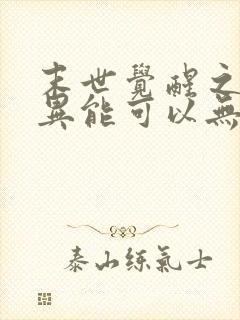 末世覺醒之
異能可以無
泰山練氣士